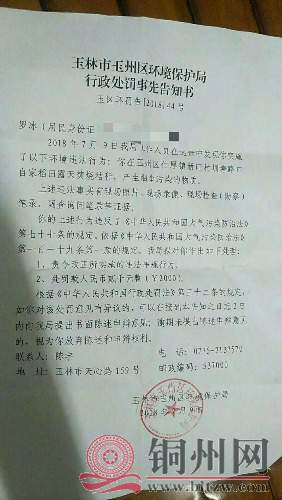 玉林市玉州区环境保护局
行政处罚事先告知书
玉区环罚告[2018]44号
居民身份证
2018年7月9日我局工作人员在
了以下环境违法行为:你在玉州区仁厚镇
自家稻田露天焚烧秸秆,产生烟尘污染的物质。
上述违法事实有现场照片、现场录像、现场检查(勘察)
笔录、调查询问笔录等证据。
你的上述行为违反了《中华人民共和国大气污染防治法》
第七十七条的规定。依据《中华人民共和国大气污染防治法》
第一百一十九条第一款的规定,我局拟对你作出如下处理:
1、责令改正所实施的违法行为。
2、处罚款人民币贰千元整(¥2000)。
根据《中华人民共和国行政处罚法》第三十二条的规定,
如你对该处罚意见有异议,可以在接到本告知书之日起
内向我局提出书面陈述申辩意见;逾期未提出陈述申辩意见
的,视为你放弃陈述和申辩权利。
联系人:陈 电话:0775-
地址:玉林市天心路159号 邮政编码:537000
玉林市玉州区环境保护局
2018年7月9日
铜州网
www.btzzw.com